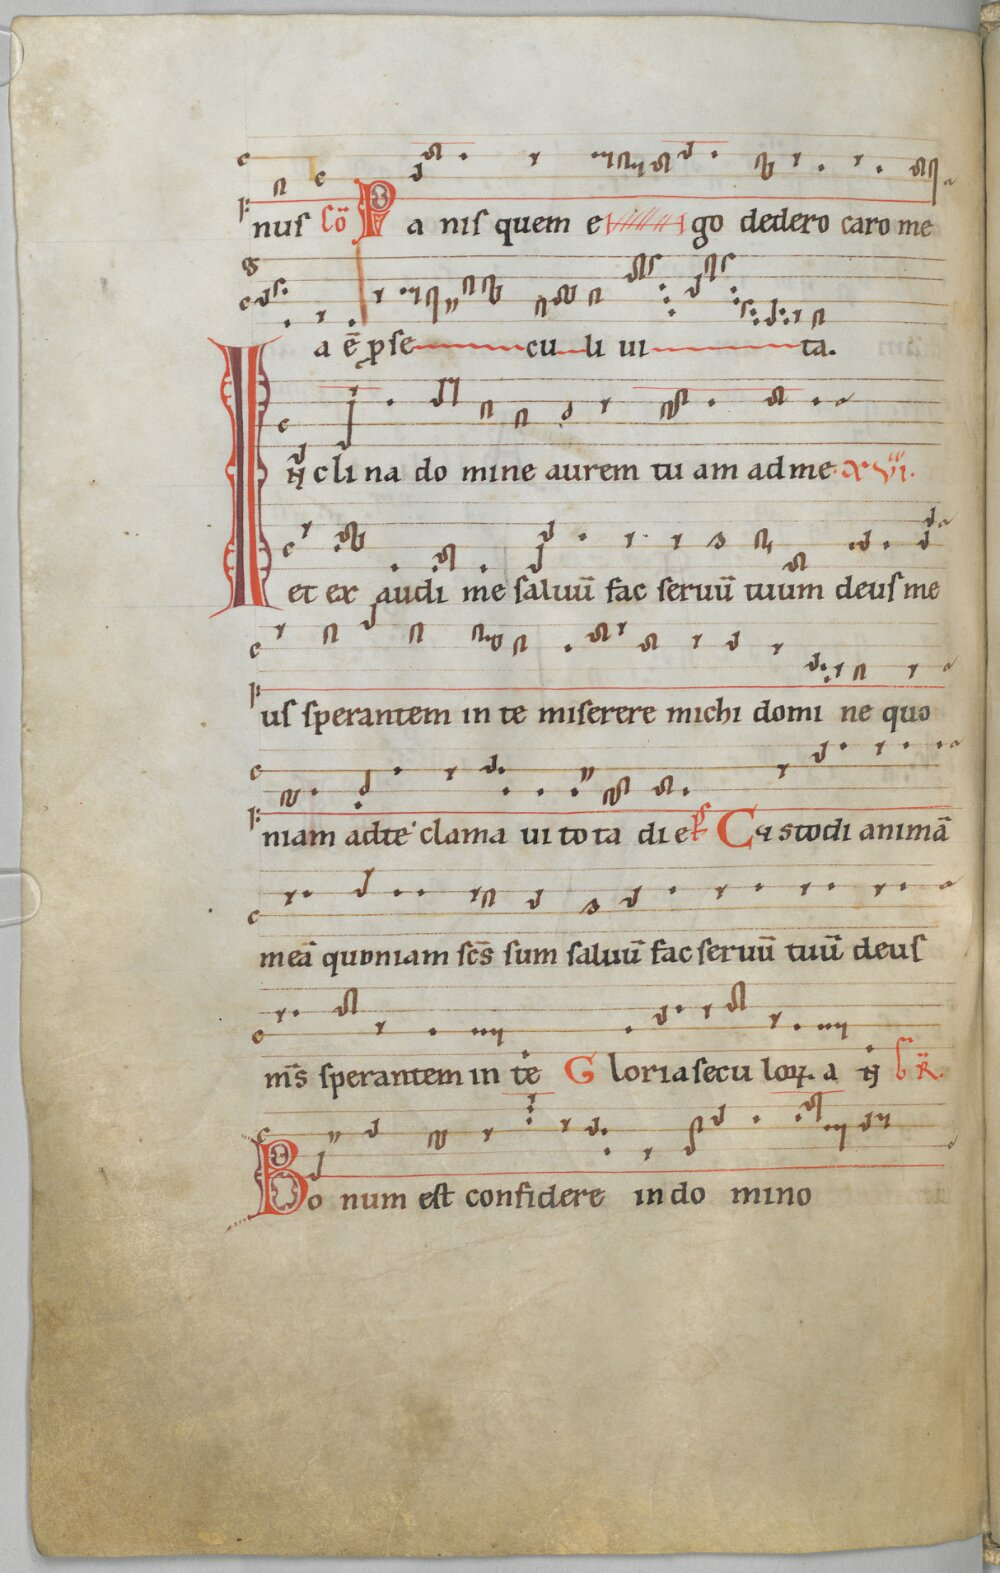 nus Cō Panis quem ego dedero caro me
a ē ꝓ se culi uita.
Inclina domine aurem tuam ad me. xvi.
et exaudi me saluū fac seruū tuum deus me
us sperantem in te miserere michi domine quo
niam ad te clamaui tota die ps Custodi animā
meā quoniam scs̄ sum saluū fac seruū tuū deus
ms̄ sperantem in te Gloria seculoꝝ. a n
Bonum est confidere in domino